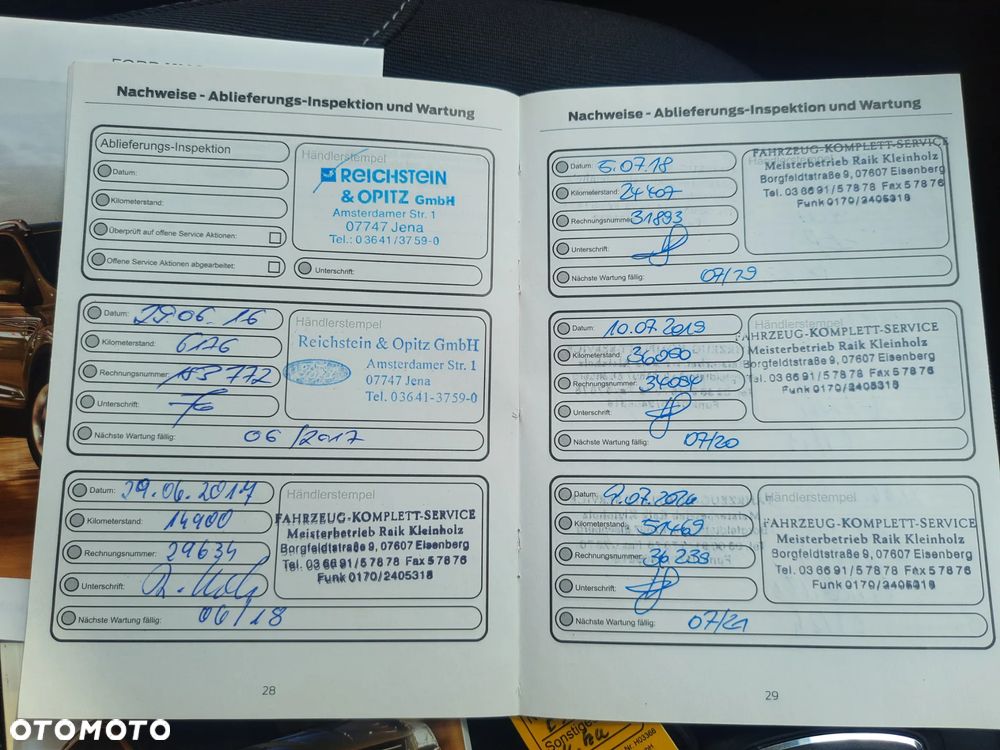 FORD
Nachweise - Ablieferungs-Inspektion und Wartung
Ablieferungs-Inspektion
Datum:
Kilometerstand:
Überprüft auf offene Service Aktionen:
Offene Service Aktionen abgearbeitet:
Händlerstempel
REICHSTEIN
& OPITZ GmbH
Amsterdamer Str. 1
07747 Jena
Tel.: 03641/3759-0
Unterschrift:
Datum: 29.06.16
Kilometerstand: 6176
Rechnungsnummer:
Unterschrift:
Händlerstempel
Reichstein & Opitz GmbH
Amsterdamer Str. 1
07747 Jena
Tel. 03641-3759-0
Nächste Wartung fällig: 06/2017
Datum: 29.06.2017
Kilometerstand: 14900
Rechnungsnummer: 29634
Unterschrift:
Händlerstempel
FAHRZEUG-KOMPLETT-SERVICE
Meisterbetrieb Raik Kleinholz
Borgfeldtstraße 9, 07607 Eisenberg
Tel. 03 66 91/5 78 78 Fax 5 78 76
Funk 0170/2405318
Nächste Wartung fällig: 06/18
28
Nachweise - Ablieferungs-Inspektion und Wartung
Datum: 5.07.18
Kilometerstand: 24407
Rechnungsnummer: 31893
Unterschrift:
Händlerstempel
FAHRZEUG-KOMPLETT-SERVICE
Meisterbetrieb Raik Kleinholz
Borgfeldtstraße 9, 07607 Eisenberg
Tel. 03 66 91/5 78 78 Fax 5 78 76
Funk 0170/2405318
Nächste Wartung fällig: 07/19
Datum: 10.07.2019
Kilometerstand:
Rechnungsnummer: 34094
Unterschrift:
Händlerstempel
FAHRZEUG-KOMPLETT-SERVICE
Meisterbetrieb Raik Kleinholz
Borgfeldtstraße 9, 07607 Eisenberg
Tel. 03 66 91/5 78 78 Fax 5 78 76
Funk 0170/2405318
Nächste Wartung fällig: 07/20
Datum:
Kilometerstand: 51469
Rechnungsnummer: 36239
Unterschrift:
Händlerstempel
FAHRZEUG-KOMPLETT-SERVICE
Meisterbetrieb Raik Kleinholz
Borgfeldtstraße 9, 07607 Eisenberg
Tel. 03 66 91/5 78 78 Fax 5 78 76
Funk 0170/2405318
Nächste Wartung fällig: 07/21
29
Sonstiges
OTOMOTO